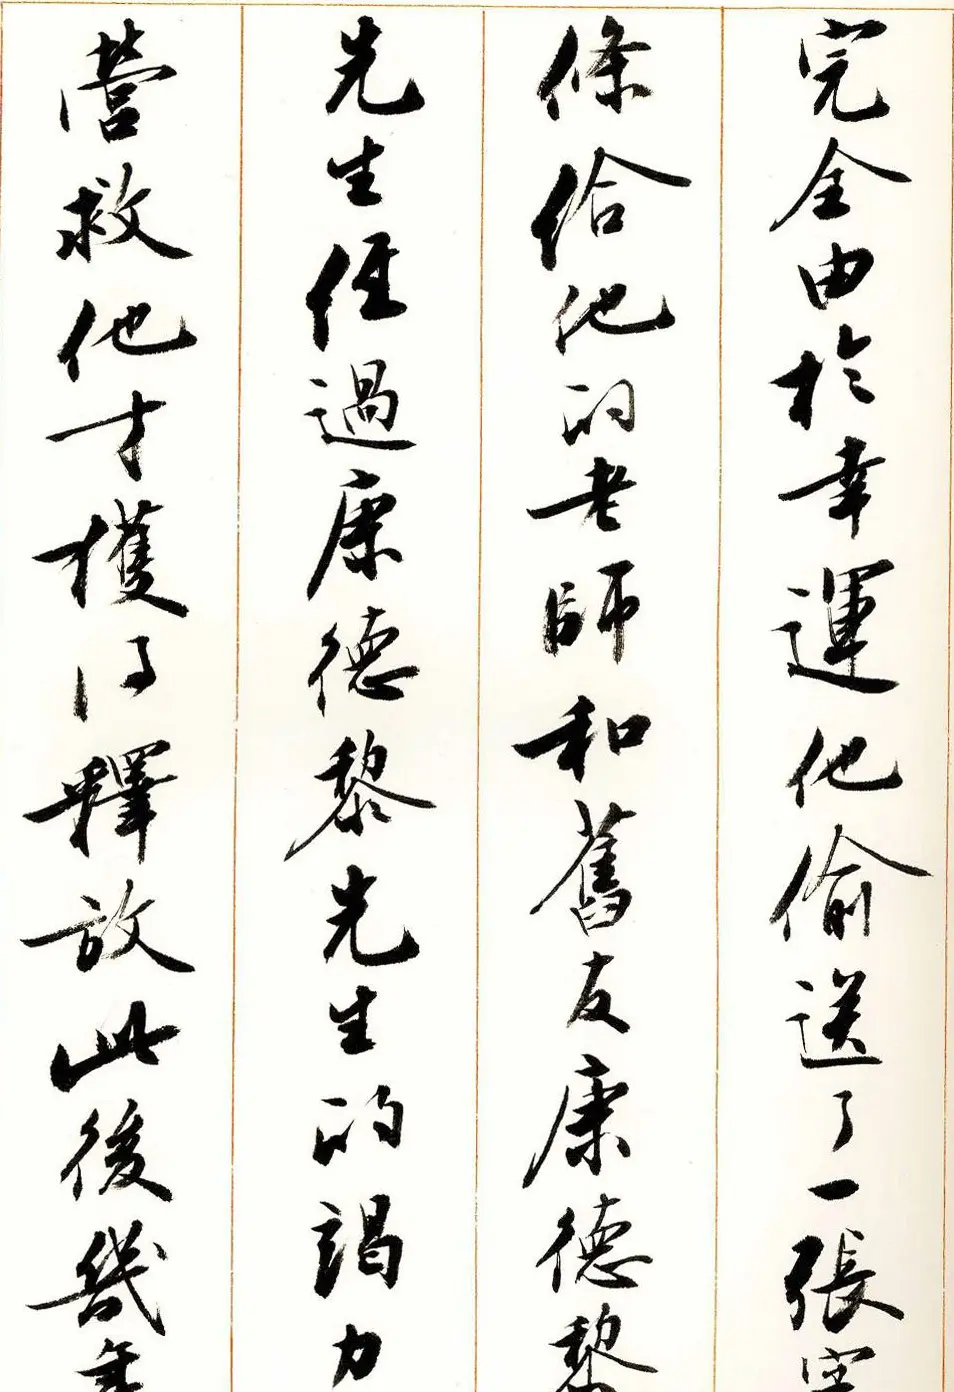 完全由於幸運他偷送了一張字
條給他的老師和舊友康德黎
先生經過康德黎先生的竭力
營救他才獲得釋放此後幾年